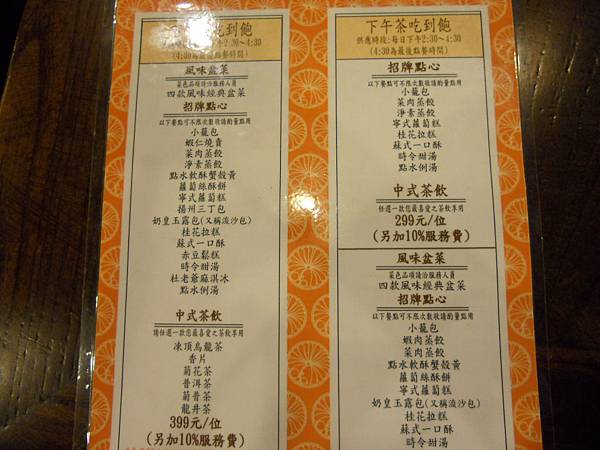 吃到飽
2:30～4:30
(4:30為最後點餐時間)
風味盆菜
菜色品項請洽服務人員
四款風味經典盆菜
招牌點心
以下餐點可不限次數敬請酌量點用
小籠包
蝦仁燒賣
菜肉蒸餃
淨素蒸餃
點水軟酥蟹殼黃
蘿蔔絲酥餅
寧式蘿蔔糕
揚州三丁包
奶皇玉露包(又稱流沙包)
桂花拉糕
蘇式一口酥
赤豆鬆糕
時令甜湯
杜老爺麻淇冰
點水例湯
中式茶飲
請任選一款您最喜愛之茶飲享用
凍頂烏龍茶
香片
菊花茶
普洱茶
菊普茶
龍井茶
399元/位
(另加10%服務費)
下午茶吃到飽
供應時段:每日下午2:30～4:30
(4:30為最後點餐時間)
招牌點心
以下餐點可不限次數敬請酌量點用
小籠包
菜肉蒸餃
淨素蒸餃
寧式蘿蔔糕
桂花拉糕
蘇式一口酥
時令甜湯
點水例湯
中式茶飲
任選一款您最喜愛之茶飲享用
299元/位
(另加10%服務費)
風味盆菜
菜色品項請洽服務人員
四款風味經典盆菜
招牌點心
以下餐點可不限次數敬請酌量點用
小籠包
蝦肉蒸餃
菜肉蒸餃
點水軟酥蟹殼黃
蘿蔔絲酥餅
寧式蘿蔔糕
奶皇玉露包(又稱流沙包)
桂花拉糕
蘇式一口酥
時令甜湯